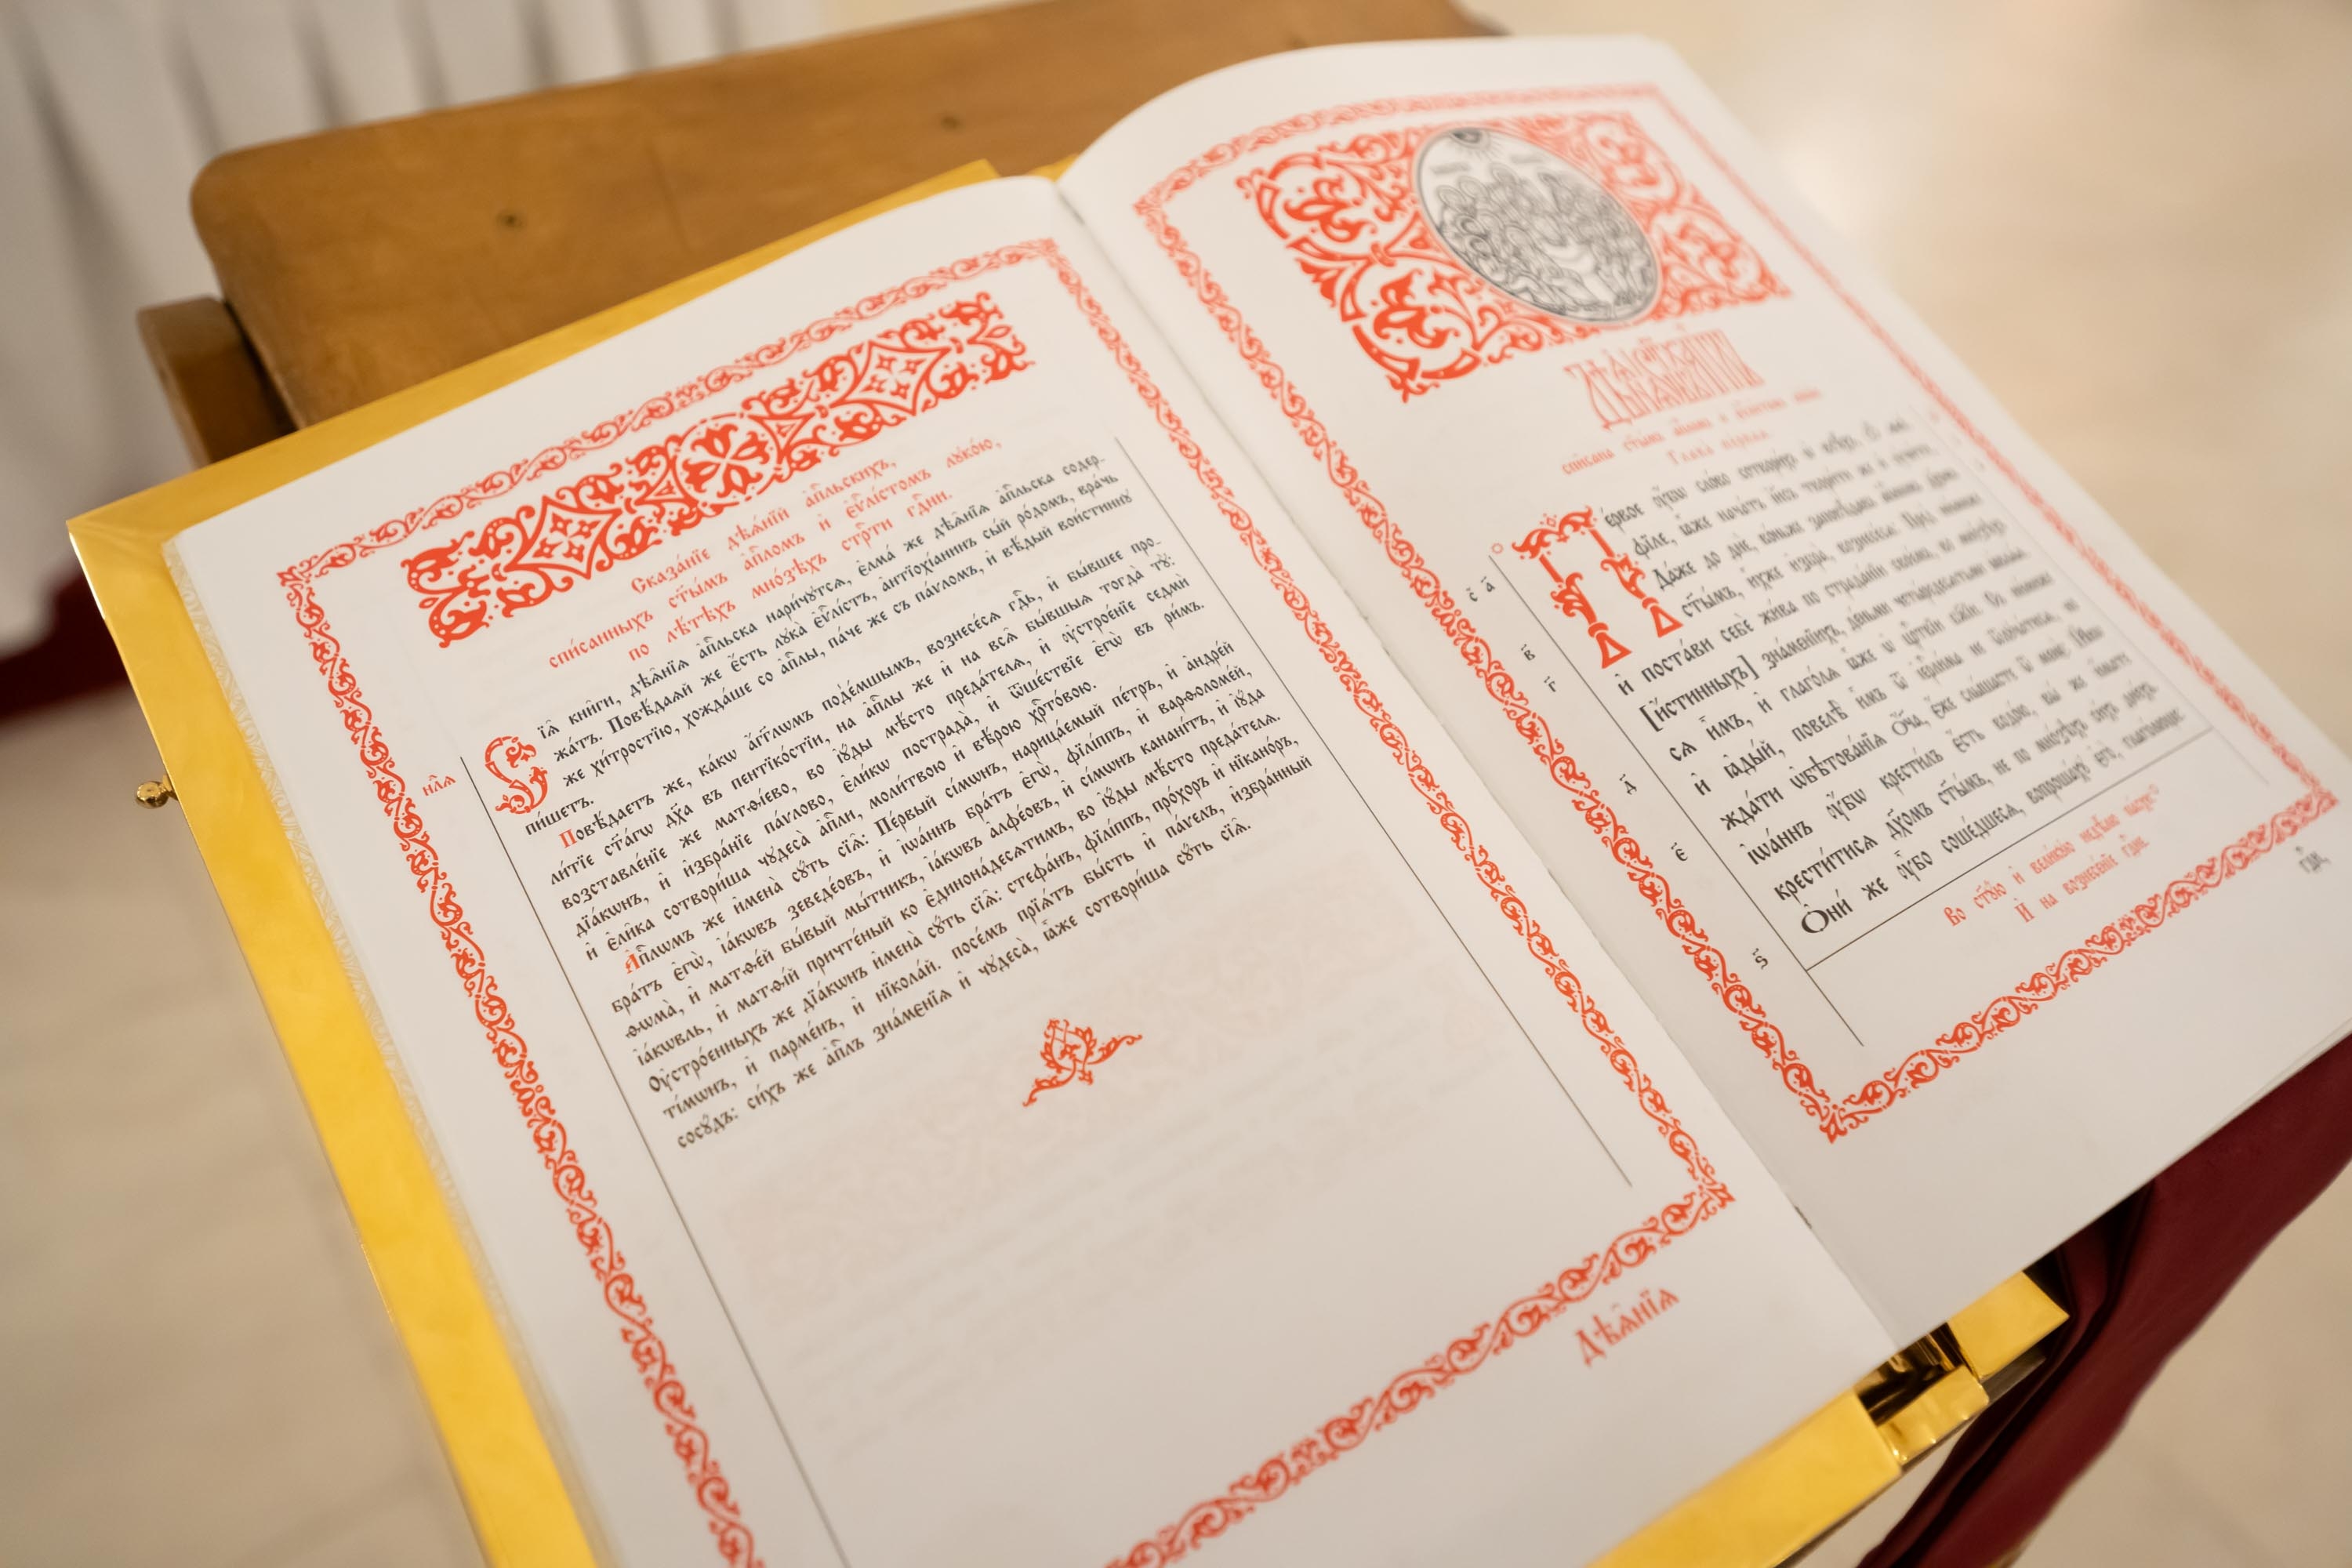 Сказа́нїе дѣѧ́нїй а҆пⷭ҇льскихъ,
спи́санныхъ ст҃ы́мъ а҆пⷭ҇ломъ и҆ є҆ѵⷢ҇лі́стомъ лꙋко́ю,
по лѣ́тѣхъ мно́зѣхъ стрⷭ҇ти гдⷭ҇ни.
Сїѧ̑ кни́ги, дѣѧ̑нїѧ а҆пⷭ҇льска нарнчꙋ́тсѧ, є҆лма́ же дѣѧ̑нїѧ а҆пⷭ҇льска содер-
жа́тъ. Повѣ́даѧй же є҆́сть лꙋка̀ є҆ѵⷢ҇лі́стъ, а҆нтїохі́анинъ сы́й ро́домъ, вра́чь
же хи́тростїю, хожда́ше со а҆пⷭ҇лы, па́че же съ па́ѵломъ, и҆ вѣ́дый вои́стиннꙋ
пи́шетъ.
Повѣ́даетъ же, ка́кѡ а҆́гг҃лѡмъ под̾е́мшымъ, вознесе́сѧ гдⷭ҇ь, и҆ бы́вшее про-
ли́тїе ст҃а́гѡ дх҃а въ пентико́стїи, на а҆пⷭ҇лы же и҆ на всѧ̑ бы́вшыѧ тогда̀ тꙋ̀:
возставле́нїе же матѳі́ево, во і҆ꙋ́ды мѣ́сто преда́телѧ, и҆ ᲂу҆строе́нїе седмѝ
дїа́кѡнъ, и҆ и҆збра́нїе па́ѵлово, є҆ли̑кѡ пострада̀, и҆ ѿше́ствїе є҆гѡ̀ въ ри́мъ.
и҆ є҆ли̑ка сотвори́ша чꙋдеса̀ а҆пⷭ҇ли, моли́твою и҆ вѣ́рою хрⷭ҇то́вою.
А҆пⷭ҇лѡмъ же и҆мена̀ сꙋ́ть сїѧ̑: Пе́рвый сі́мѡнъ, нарица́емый пе́тръ, и҆ а҆ндре́й
бра́тъ є҆гѡ̀, і҆а́кѡвъ зеведе́овъ, и҆ і҆ѡа́ннъ бра́тъ є҆гѡ̀, фїлі́ппъ, и҆ варѳоломе́й,
ѳѡма̀, и҆ матѳе́й бы́вый мы́тникъ, і҆а́кѡвъ а҆лфе́овъ, и҆ сі́мѡнъ канані́тъ, и҆ і҆ꙋ́да
і҆а́кѡвль, и҆ матѳі́й причте́ный ко є҆динона́десѧтимъ, во і҆ꙋ́ды мѣ́сто преда́телѧ.
Оу҆стро́енныхъ же дїа́кѡнъ и҆мена̀ сꙋ́ть сїѧ̑: стефа́нъ, фїлі́ппъ, про́хоръ и҆ нїкано́ръ,
ті́мѡнъ, и҆ парме́нъ, и҆ нїкола́й. посе́мъ прїѧ́тъ бы́сть и҆ па́ѵелъ, и҆збра́нный
сосꙋ́дъ: си́хъ же а҆пⷭ҇лъ зна́менїѧ и҆ чꙋдеса̀, ꙗ҆́же сотвори́ша сꙋ́ть сїѧ̑.
Дѣѧ̑нїѧ
Глава̀ пе́рваѧ.
Пе́рвое ᲂу҆́бѡ сло́во сотвори́хъ
ѳїле, ꙗ҆̀же нача́тъ і҆и҃съ твори́ти же и҆ ᲂу҆чи́ти,
Да́же до днѐ,
ст҃ы́мъ, и҆̀хже и҆збра̀, вознесе́сѧ:
и҆ поста́ви себѐ жи́ва по страда́нїи свое́мъ, во мно́зѣхъ
[и҆́стинныхъ] зна́менїихъ, де́ньми четы́редесѧтьми
сѧ и҆̀мъ, и҆ глаго́лѧ ꙗ҆̀же ѡ҆ црⷭ҇твїи бж҃їи.
и҆ ꙗ҆ды́й, повелѣ̀ и҆̀мъ ѿ і҆ерⷭ҇ли́ма не ѿлꙋча́тисѧ, но
жда́ти ѡ҆бѣтова́нїѧ ѻ҆́ч҃а, є҆́же слы́шасте ѿ менѐ:
і҆ѡа́ннъ ᲂу҆́бѡ крести́лъ є҆́сть водо́ю, вы́ же и҆́мате
крести́тисѧ дх҃омъ ст҃ы́мъ, не по мно́зѣхъ си́хъ дне́хъ.
Ѻ҆ни́ же ᲂу҆̀бо соше́дшесѧ, вопроша́хꙋ є҆го̀, глаго́люще:
Во ст҃ꙋ́ю и҆ вели́кꙋю недѣ́лю па́схи
И҆ на вознесе́нїе гдⷭ҇не.